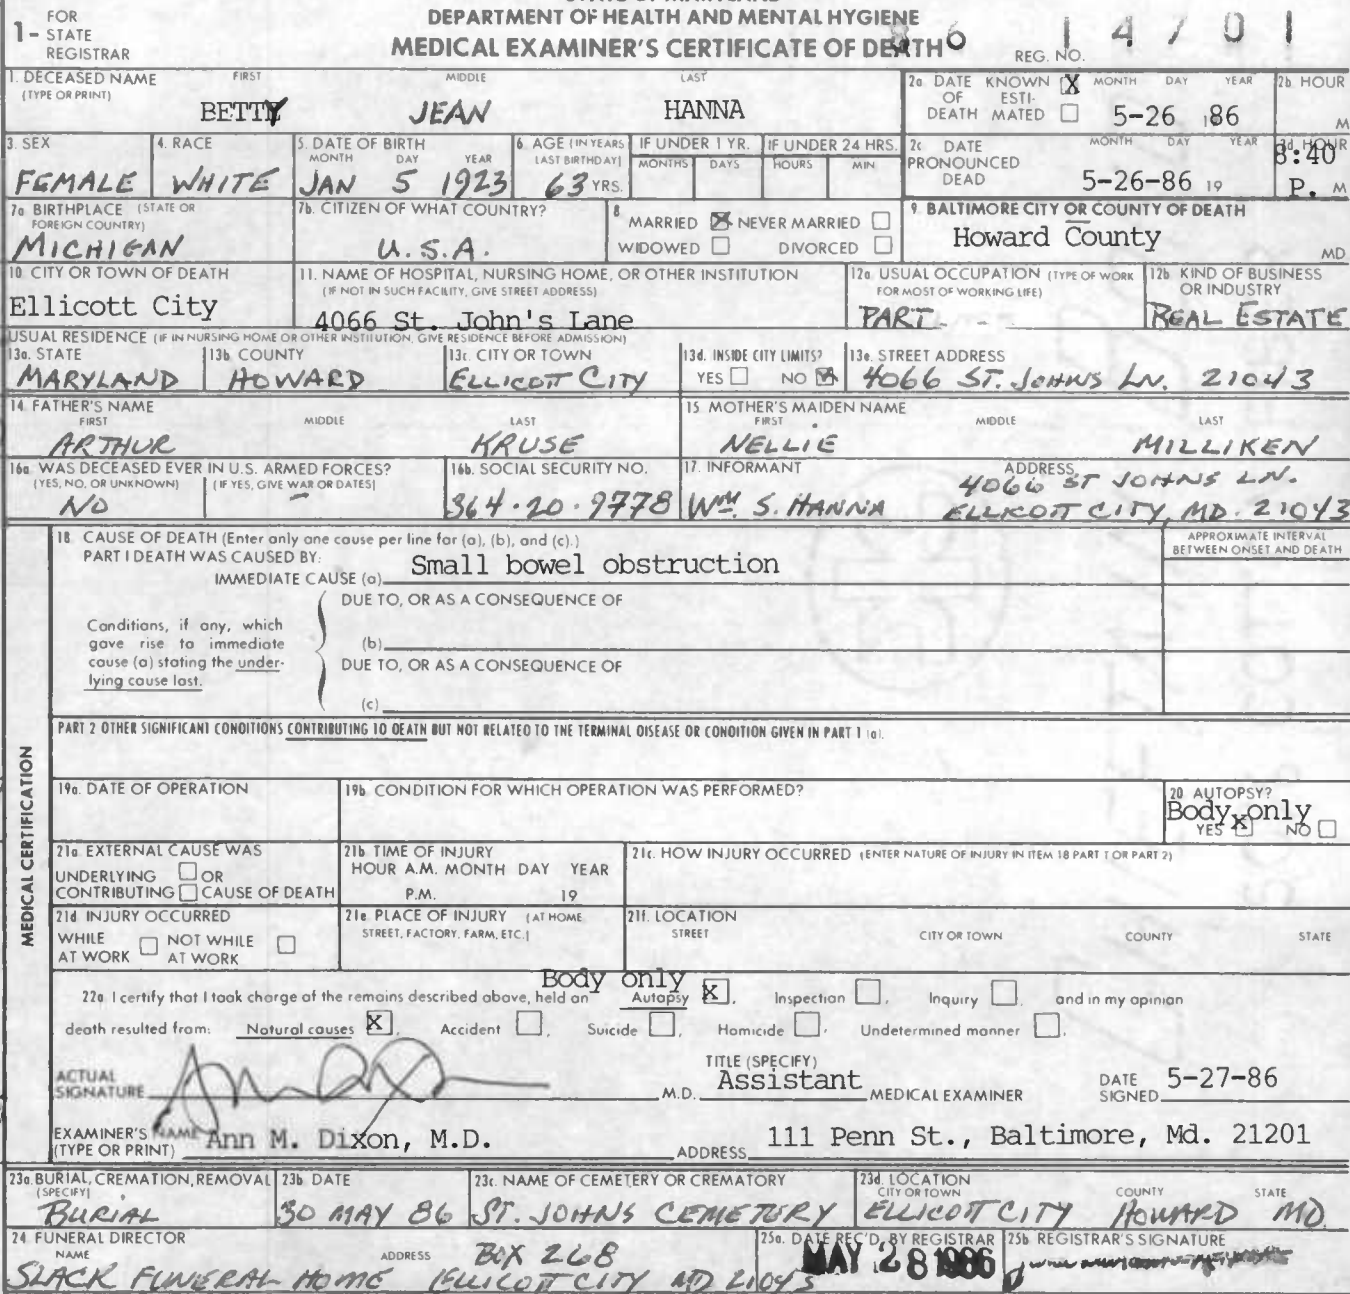 1- FOR STATE REGISTRAR
DEPARTMENT OF HEALTH AND MENTAL HYGIENE
MEDICAL EXAMINER'S CERTIFICATE OF DEATH
REG. NO. 86 14701
1. DECEASED NAME (TYPE OR PRINT) FIRST MIDDLE LAST
BETTY JEAN HANNA
2a. DATE OF DEATH KNOWN X ESTIMATED MONTH DAY YEAR
5-26 1986
2b HOUR M
3. SEX
FEMALE
4. RACE
WHITE
5. DATE OF BIRTH MONTH DAY YEAR
JAN 5 1923
6. AGE (IN YEARS LAST BIRTHDAY)
63 YRS.
IF UNDER 1 YR. MONTHS DAYS
IF UNDER 24 HRS. HOURS MIN
2c DATE PRONOUNCED DEAD MONTH DAY YEAR
5-26-86 19
2d. HOUR
8:40 P. M
7a BIRTHPLACE (STATE OR FOREIGN COUNTRY)
MICHIGAN
7b. CITIZEN OF WHAT COUNTRY?
U.S.A.
8 MARRIED X NEVER MARRIED
WIDOWED DIVORCED
9. BALTIMORE CITY OR COUNTY OF DEATH
Howard County MD
10. CITY OR TOWN OF DEATH
Ellicott City
11. NAME OF HOSPITAL, NURSING HOME, OR OTHER INSTITUTION
(IF NOT IN SUCH FACILITY, GIVE STREET ADDRESS)
4066 St. John's Lane
12a. USUAL OCCUPATION (TYPE OF WORK FOR MOST OF WORKING LIFE)
PART - -
12b. KIND OF BUSINESS OR INDUSTRY
REAL ESTATE
USUAL RESIDENCE (IF IN NURSING HOME OR OTHER INSTITUTION, GIVE RESIDENCE BEFORE ADMISSION)
13a. STATE
MARYLAND
13b. COUNTY
HOWARD
13c. CITY OR TOWN
ELLICOTT CITY
13d. INSIDE CITY LIMITS?
YES NO X
13e. STREET ADDRESS
4066 ST. JOHNS LN. 21043
14. FATHER'S NAME FIRST MIDDLE LAST
ARTHUR KRUSE
15. MOTHER'S MAIDEN NAME FIRST MIDDLE LAST
NELLIE MILLIKEN
16a. WAS DECEASED EVER IN U.S. ARMED FORCES?
(YES, NO, OR UNKNOWN) (IF YES, GIVE WAR OR DATES)
NO -
16b. SOCIAL SECURITY NO.
364-20-9778
17. INFORMANT ADDRESS
WM. S. HANNA 4066 ST JOHNS LN.
ELLICOTT CITY, MD. 21043
MEDICAL CERTIFICATION
18. CAUSE OF DEATH (Enter only one cause per line for (a), (b), and (c).)
PART I DEATH WAS CAUSED BY:
IMMEDIATE CAUSE (a) Small bowel obstruction
APPROXIMATE INTERVAL BETWEEN ONSET AND DEATH
DUE TO, OR AS A CONSEQUENCE OF
Conditions, if any, which gave rise to immediate cause (a) stating the underlying cause last.
(b)
DUE TO, OR AS A CONSEQUENCE OF
(c)
PART 2 OTHER SIGNIFICANT CONDITIONS CONTRIBUTING TO DEATH BUT NOT RELATED TO THE TERMINAL DISEASE OR CONDITION GIVEN IN PART 1 (a).
19a. DATE OF OPERATION
19b. CONDITION FOR WHICH OPERATION WAS PERFORMED?
20. AUTOPSY?
Body only
YES X NO
21a. EXTERNAL CAUSE WAS
UNDERLYING OR
CONTRIBUTING CAUSE OF DEATH
21b. TIME OF INJURY
HOUR A.M. MONTH DAY YEAR
P.M. 19
21c. HOW INJURY OCCURRED (ENTER NATURE OF INJURY IN ITEM 18 PART 1 OR PART 2)
21d. INJURY OCCURRED
WHILE AT WORK NOT WHILE AT WORK
21e. PLACE OF INJURY (AT HOME STREET, FACTORY, FARM, ETC.)
21f. LOCATION
STREET CITY OR TOWN COUNTY STATE
Body only
22a. I certify that I took charge of the remains described above, held an Autopsy X, Inspection, Inquiry, and in my opinion
death resulted from: Natural causes X, Accident, Suicide, Homicide, Undetermined manner.
ACTUAL SIGNATURE M.D.
TITLE (SPECIFY)
Assistant MEDICAL EXAMINER
DATE SIGNED 5-27-86
EXAMINER'S NAME (TYPE OR PRINT) Ann M. Dixon, M.D.
ADDRESS 111 Penn St., Baltimore, Md. 21201
23a. BURIAL, CREMATION, REMOVAL (SPECIFY)
BURIAL
23b. DATE
30 MAY 86
23c. NAME OF CEMETERY OR CREMATORY
ST. JOHNS CEMETERY
23d. LOCATION CITY OR TOWN COUNTY STATE
ELLICOTT CITY HOWARD MD
24. FUNERAL DIRECTOR
NAME ADDRESS
SLACK FUNERAL HOME BOX 268
ELLICOTT CITY MD 21043
25a. DATE REC'D. BY REGISTRAR
MAY 28 1986
25b. REGISTRAR'S SIGNATURE